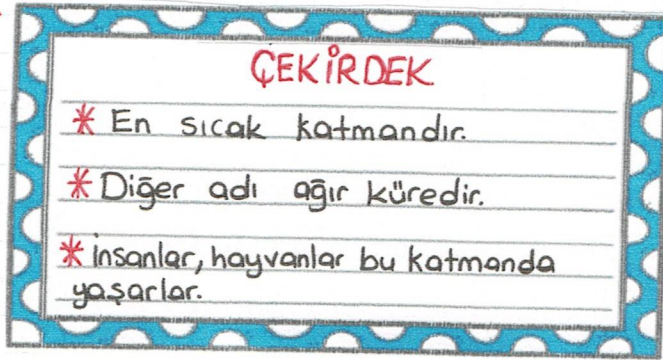 ÇEKİRDEK
* En sıcak katmandır.
* Diğer adı ağır küredir.
* insanlar, hayvanlar bu katmanda
yaşarlar.